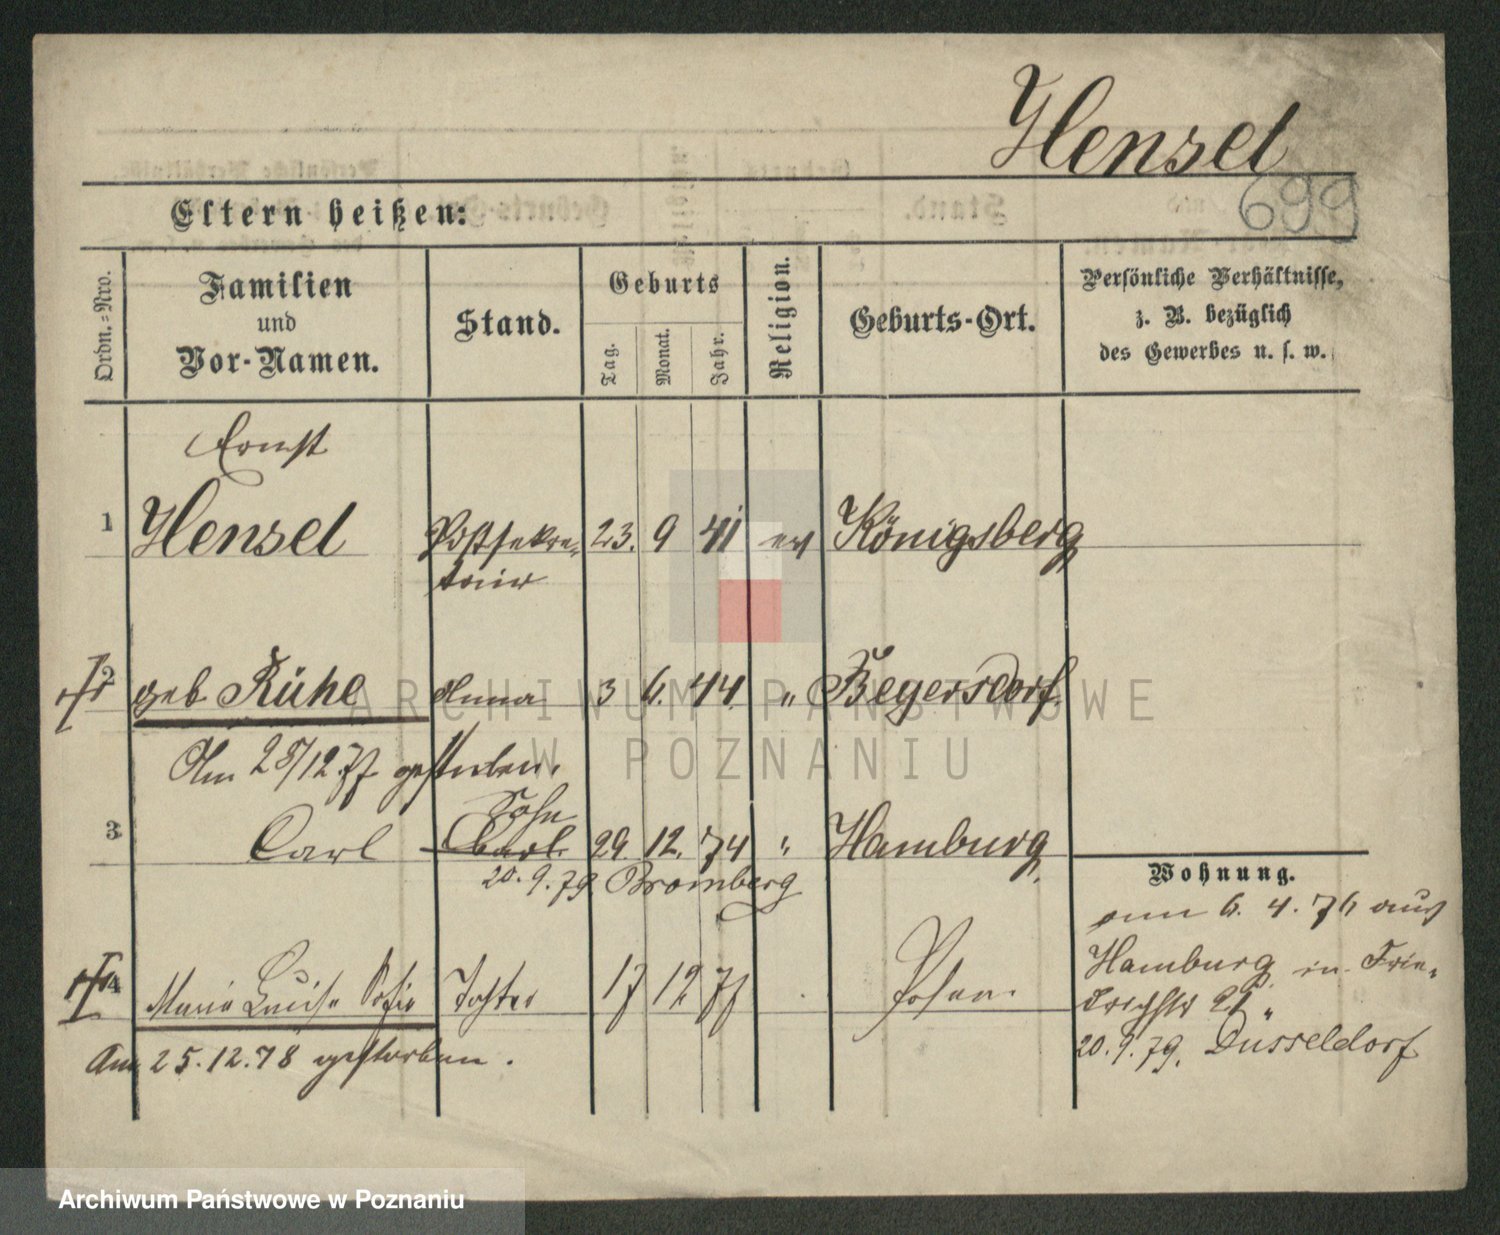 Hensel
699
Eltern heißen:
Ordn.-Nro.
Familien
und
Vor-Namen.
Stand.
Geburts
Tag.
Monat.
Jahr.
Religion.
Geburts-Ort.
Persönliche Verhältnisse,
z. B. bezüglich
des Gewerbes u. s. w.
Ernst
1 Hensel Postsekre- 23. 9 41 ev Königsberg
tair
2 geb Rühe Anna 3 6. 44 " Beyersdorf
Am 28/12.77 gestorben.
Sohn
3 Carl Carl 29. 12. 74 " Hamburg
20. 9. 79 Bromberg
Wohnung.
am 6. 4. 76 aus
Hamburg in Frie-
drichstr 21
20. 9. 79. Düsseldorf
4 Marie Luise Sofie Tochter 17 12 77 Posen
Am 25. 12. 78 gestorben.
ARCHIWUM PAŃSTWOWE
W POZNANIU
Archiwum Państwowe w Poznaniu